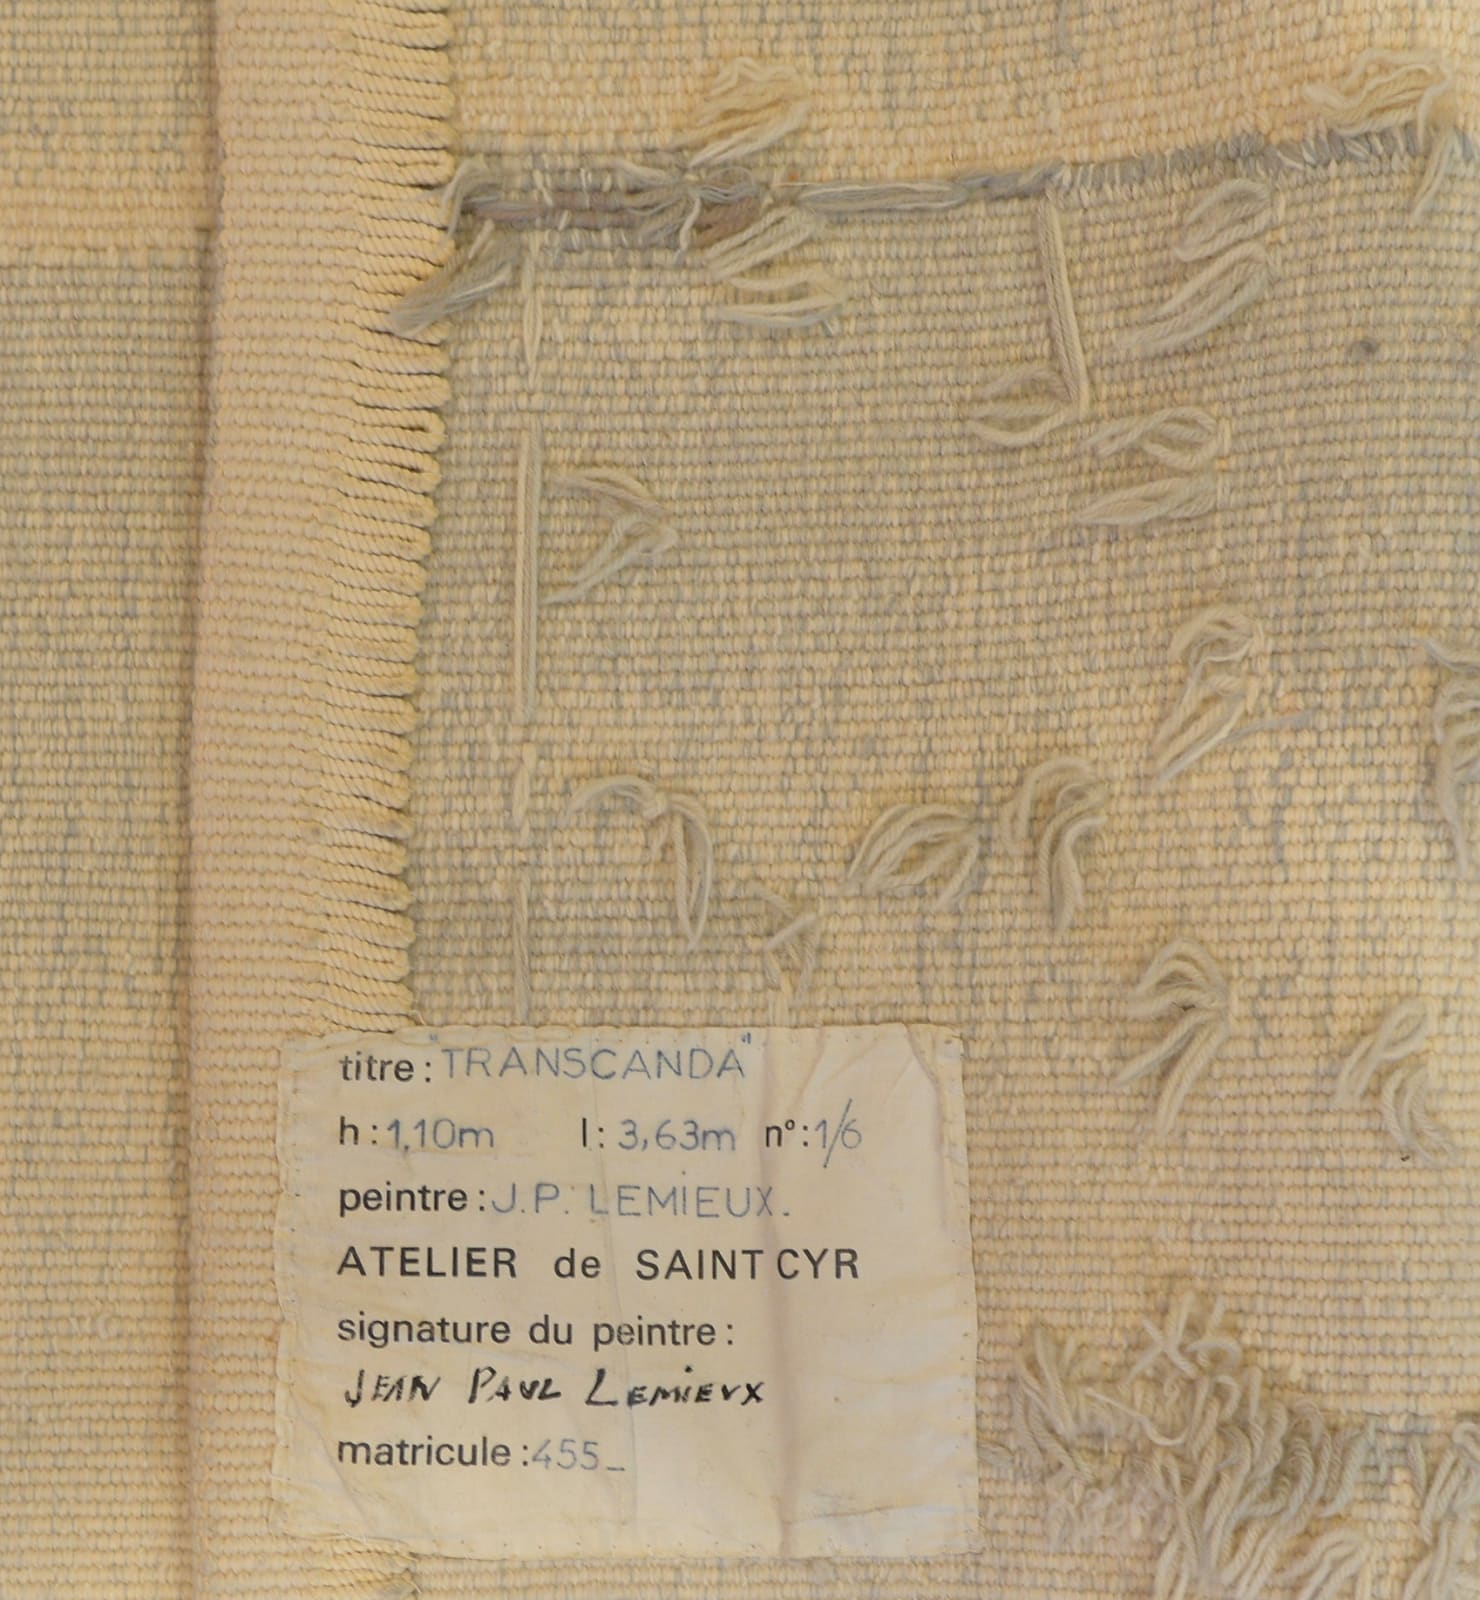 titre: "TRANSCANDA"
h: 1,10m l: 3,63m n°: 1/6
peintre: J.P. LEMIEUX.
ATELIER de SAINT CYR
signature du peintre:
JEAN PAUL LEMIEUX
matricule: 455_